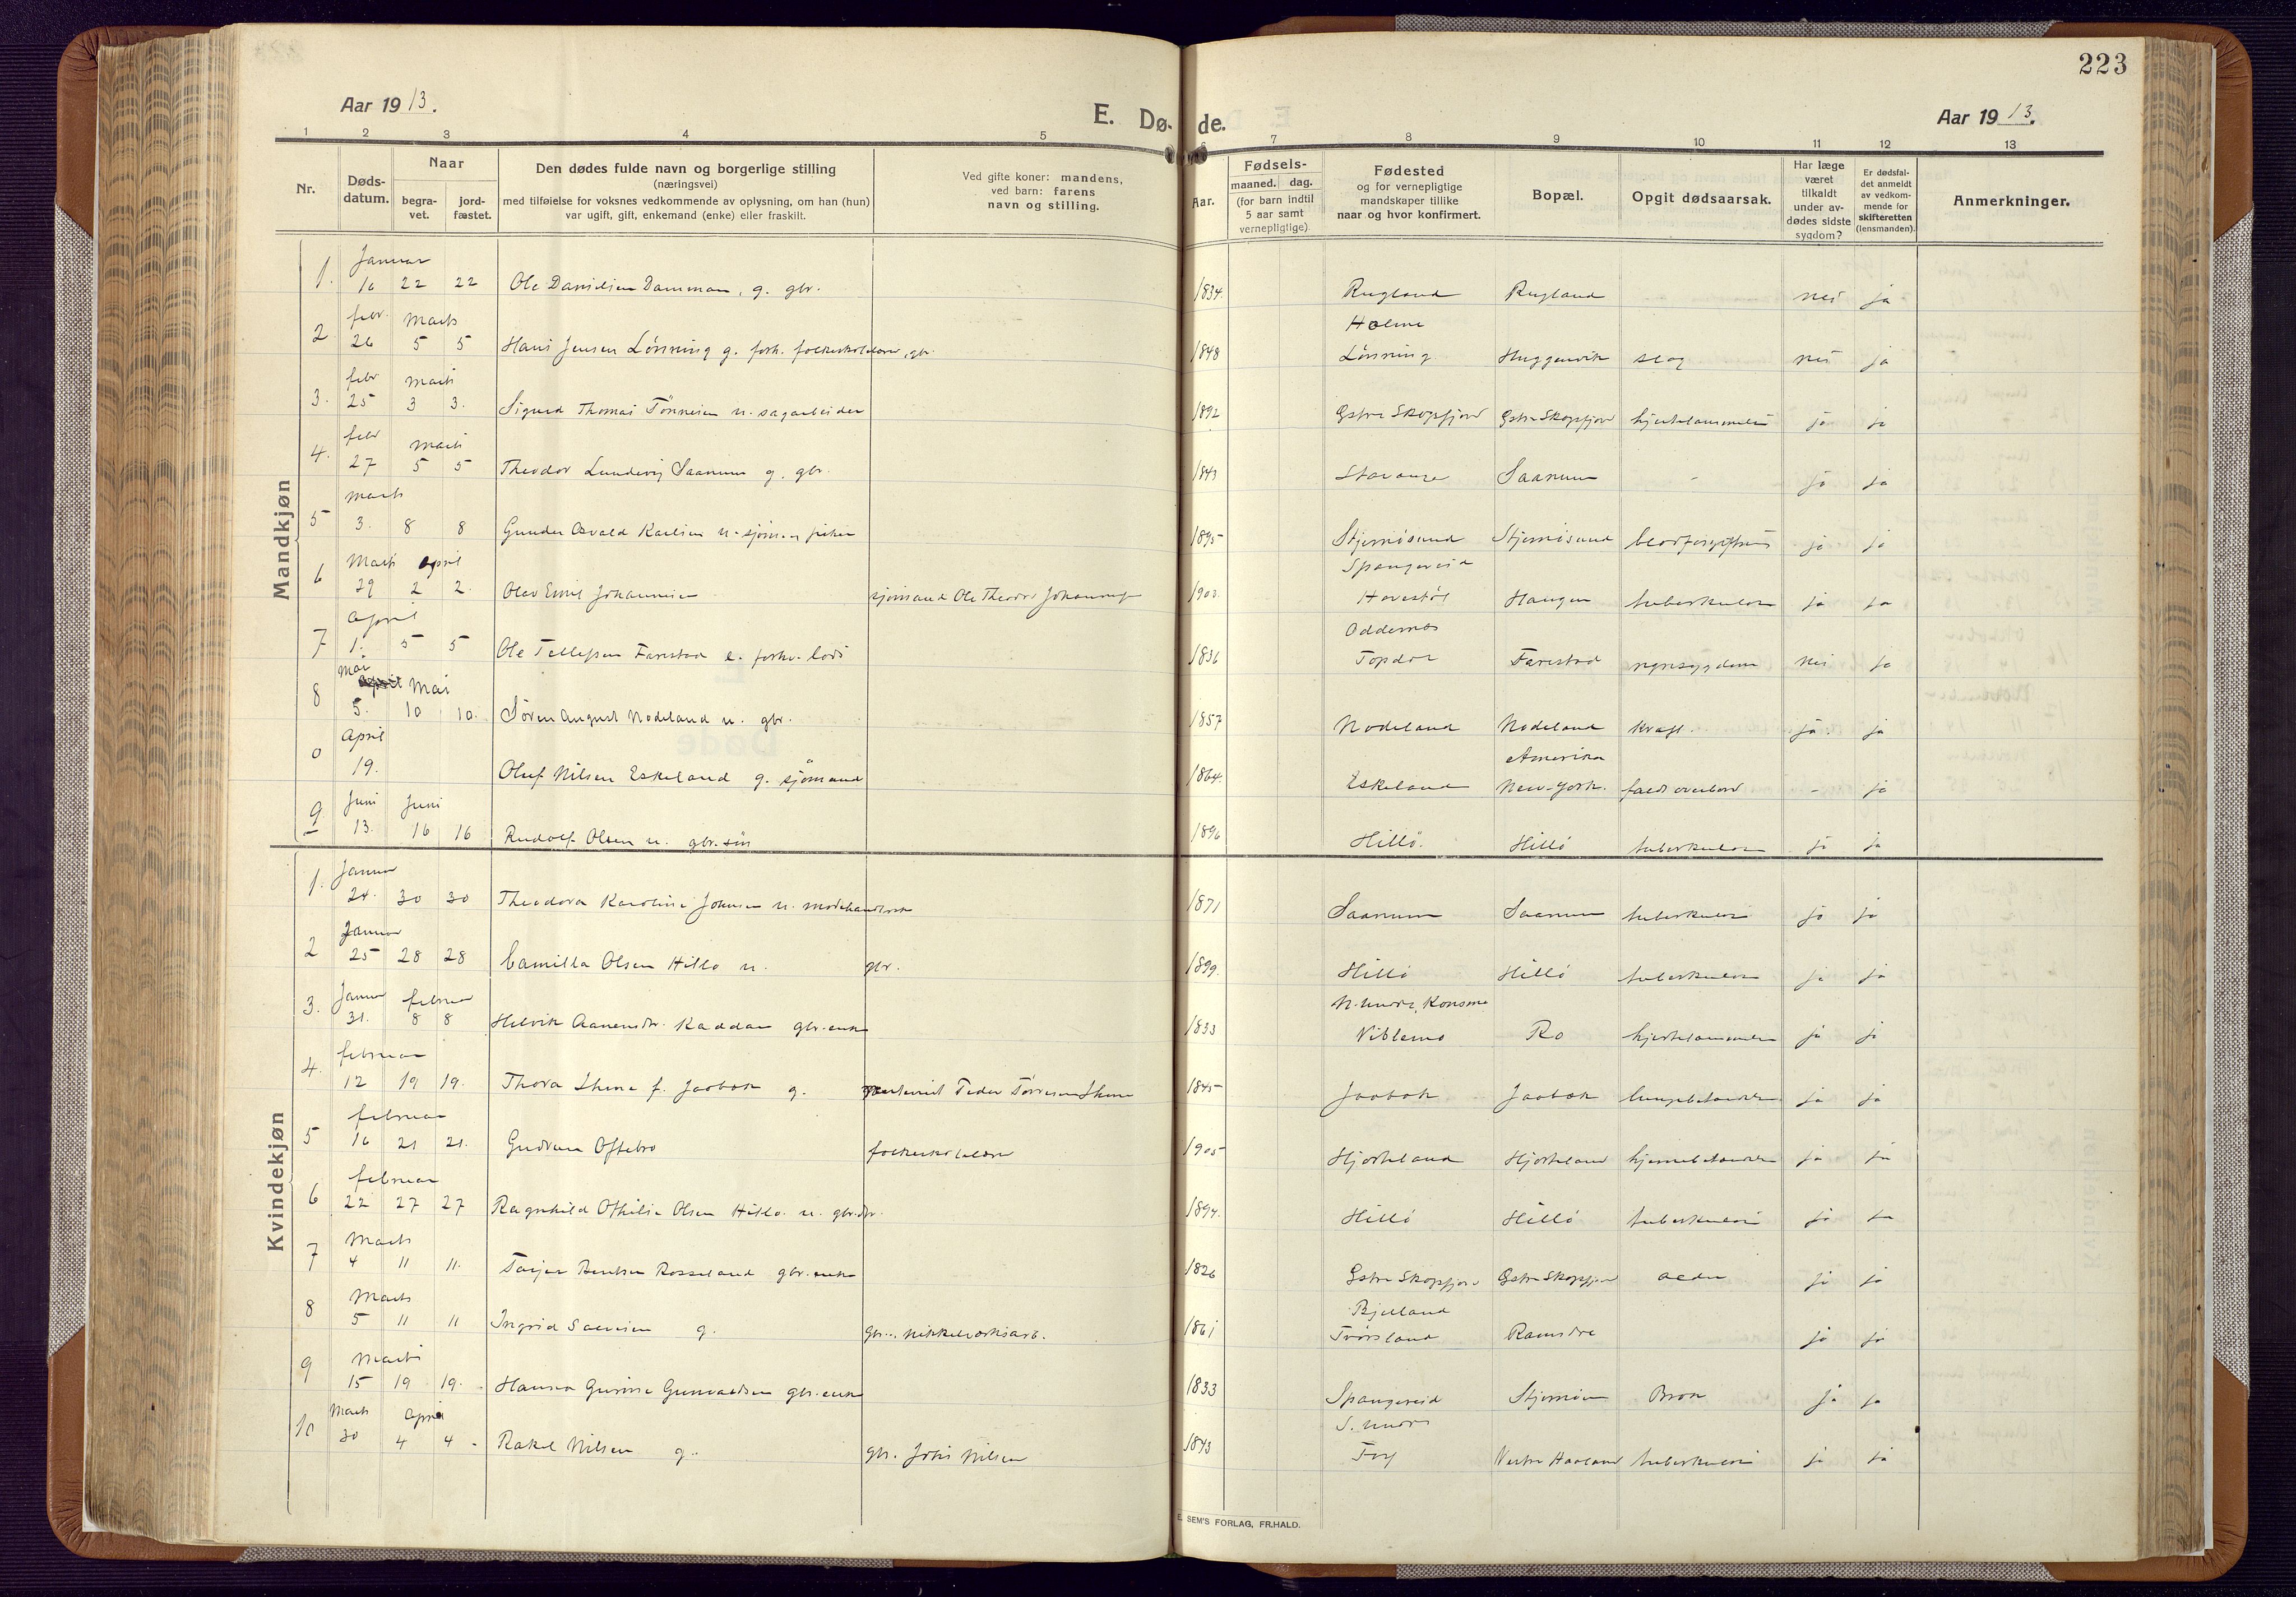 223
Aar 1913.
E. Dø-
de.
Aar 1913.
1 2 3 4 5 6 7 8 9 10 11 12 13
Nr.
Døds-
datum.
Naar
begra-
vet.
jord-
fæstet.
Den dødes fulde navn og borgerlige stilling
(næringsvei)
med tilføielse for voksnes vedkommende av oplysning, om han (hun)
var ugift, gift, enkemand (enke) eller fraskilt.
Ved gifte koner: mandens,
ved barn: farens
navn og stilling.
Aar.
Fødsels-
maaned. dag.
(for barn indtil
5 aar samt
vernepligtige)
Fødested
og for vernepligtige
mandskaper tillike
naar og hvor konfirmert.
Bopæl.
Opgit dødsaarsak.
Har læge
været
tilkaldt
under av-
dødes sidste
sygdom?
Er dødsfal-
det anmeldt
av vedkom-
mende for
skifteretten
(lensmanden).
Anmerkninger.
Mandkjøn
Januar
1. 16 22 22 Ole Danielsen Damman, g. gbr. 1834. Rugland Rugland nei ja
febr. Marts Holme
2 26 5 5 Hans Jensen Lønning g. forh. folkeskolelærer, gbr. 1848 Lønning Huggenvik slag nei ja
febr Marts
3. 25 3 3. Sigurd Thomas Tønnesen u. sagarbeider 1892 Østre Skogsfjord Østre Skogsfjord hjertelammelse ja ja
febr Marts
4. 27 5 5 Theodor Lundevig Saanum g. gbr. 1843 Stavanger Saanum - ja ja
Marts
5 3. 8 8 Gunder Osvald Karlsen u. sjøm. 1895 Stjernøsund Stjernøsund blodforgiftning ja ja
Marts april Spangereid
6 29 2 2. Olav Emil Johannesen sjømand Ole Theodor Johannesen Hovestøl Haugen tuberkulose ja ja
april Oddernes
7 1. 5 5 Ole Tellefsen Farestad e. forhv. lods 1836 Topdal Farestad nyresygdom nei ja
Mai Mai
8 5. 10 10. Søren August Nodeland u. gbr. 1857 Nodeland Nodeland kræft. ja ja
April Amerika
0 19. Oluf Nilsen Eskeland g. sjømand 1864. Eskeland New-York. faldt overbord - ja
Juni Juni
9 13. 16 16 Rudolf Olsen u. gbr. søn 1896 Hillø. Hillø tuberkulose ja ja
Kvindekjøn
Januar
1. 24. 30 30 Theodora Karoline Johnsen u. modehandlerske 1871 Saanum Saanum tuberkulose ja ja
Januar
2 25 28 28 Camilla Olsen Hillø u. gbr. 1899. Hillø Hillø tuberkulose ja ja
Januar februar N. Undal, Konsmo
3. 31. 8 8 Helvik Aanensdr. Kaddan gbr. enke 1833 Viblemo Ro hjertelammelse ja ja
februar
4. 12 19 19. Thora Ihme f. Jaabæk g. Peder Tørresen Ihme 1845 Jaabæk Jaabæk lungebetændelse ja ja
februar
5 16 21 21. Gudrun Oftebro folkeskolelærer 1905 Hjorteland Hjorteland hjernebetændelse ja ja
februar
6 22 27 27 Ragnhild Othilie Olsen Hillø. u. gbr. dtr. 1894. Hillø Hillø tuberkulose ja ja
Marts
7 4 11 11. Tarjer Bentsen Rosseland gbr. enke 1826 Østre Skogsfjord Østre Skogsfjord alder ja ja
Marts Bjelland
8 5 11 11 Ingrid Salvesen g. gbr. nikkelverksarb. 1861 Tvørsland Ramsdal ja ja
Marts
9 15 19 19. Hanna Gurine Gunvaldsen gbr. enke 1833 Spangereid Stjernøen Brok ja ja
Marts April S. Undal
10 30 4 4 Rakel Nilsen g. gbr. Johs Nilsen 1843 Foss Vestre Haaland tuberkulose ja ja
E. SEM'S FORLAG, FR.HALD.